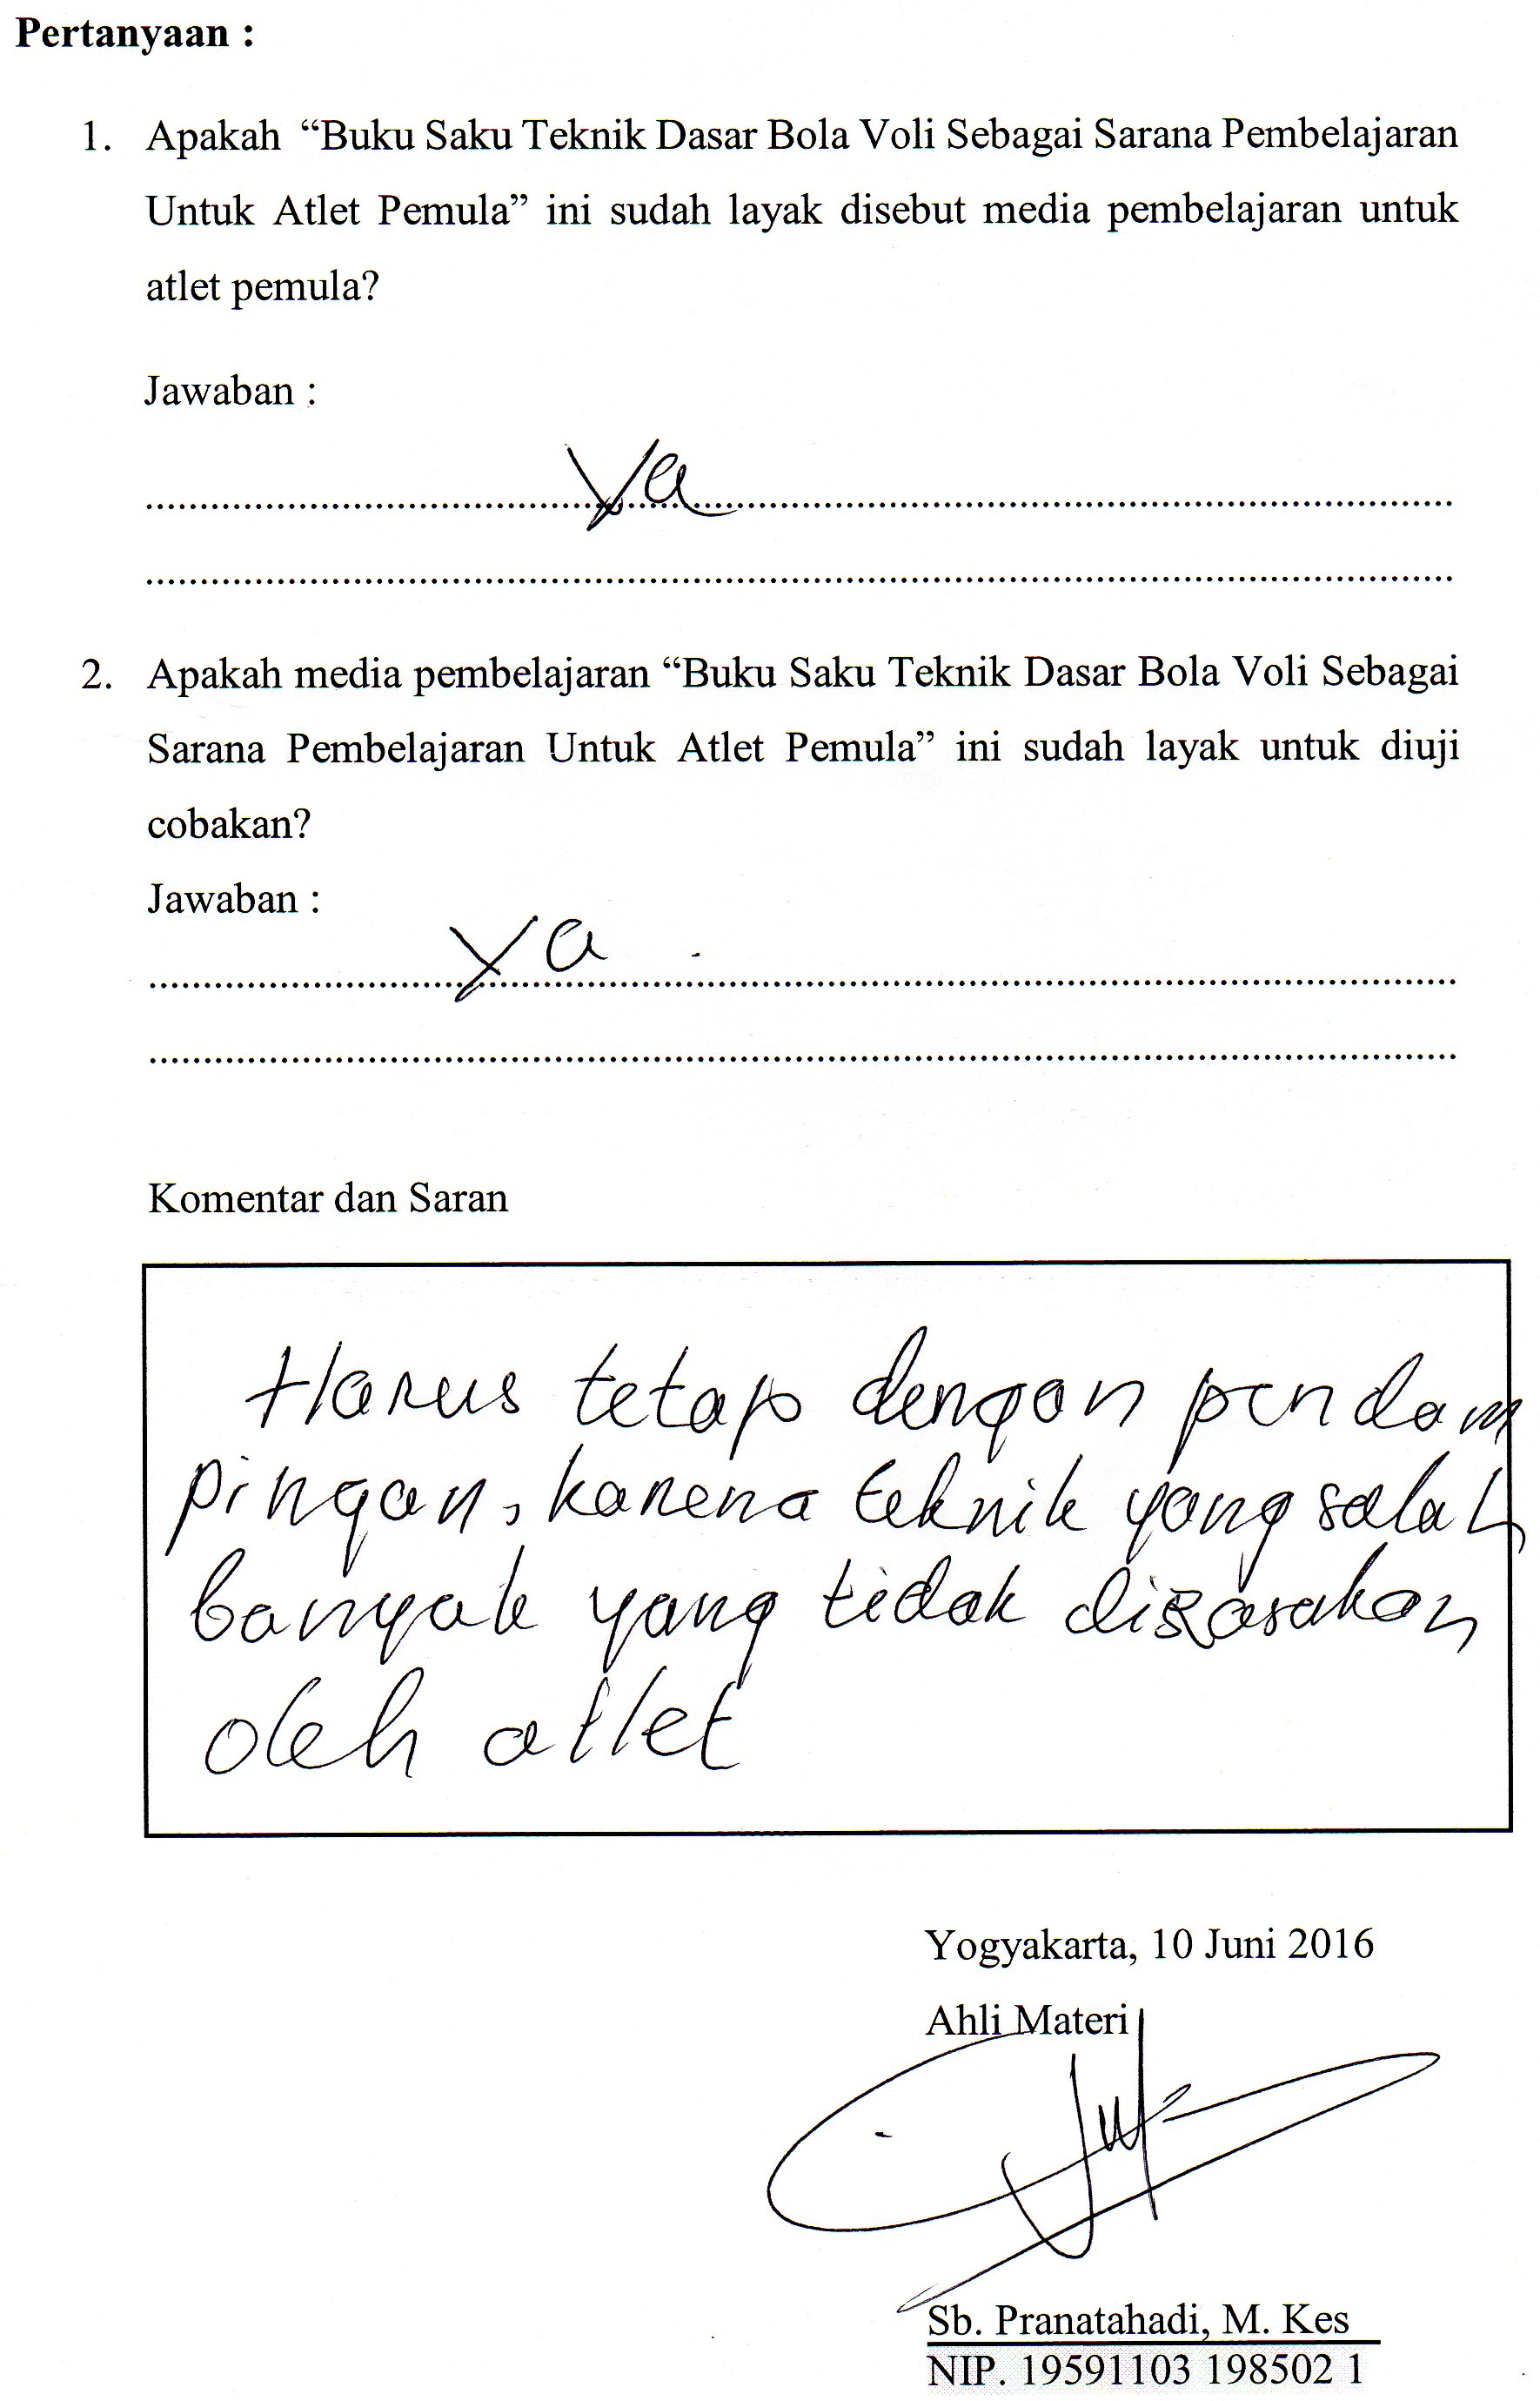 Pertanyaan :
1. Apakah “Buku Saku Teknik Dasar Bola Voli Sebagai Sarana Pembelajaran
Untuk Atlet Pemula” ini sudah layak disebut media pembelajaran untuk
atlet pemula?
Jawaban :
Ya
2. Apakah media pembelajaran “Buku Saku Teknik Dasar Bola Voli Sebagai
Sarana Pembelajaran Untuk Atlet Pemula” ini sudah layak untuk diuji
cobakan?
Jawaban :
Ya
Komentar dan Saran
Harus tetap dengan pendam
pingan, karena teknik yang salah
banyak yang tidak dirasakan
oleh atlet
Yogyakarta, 10 Juni 2016
Ahli Materi
Sb. Pranatahadi, M. Kes
NIP. 19591103 198502 1